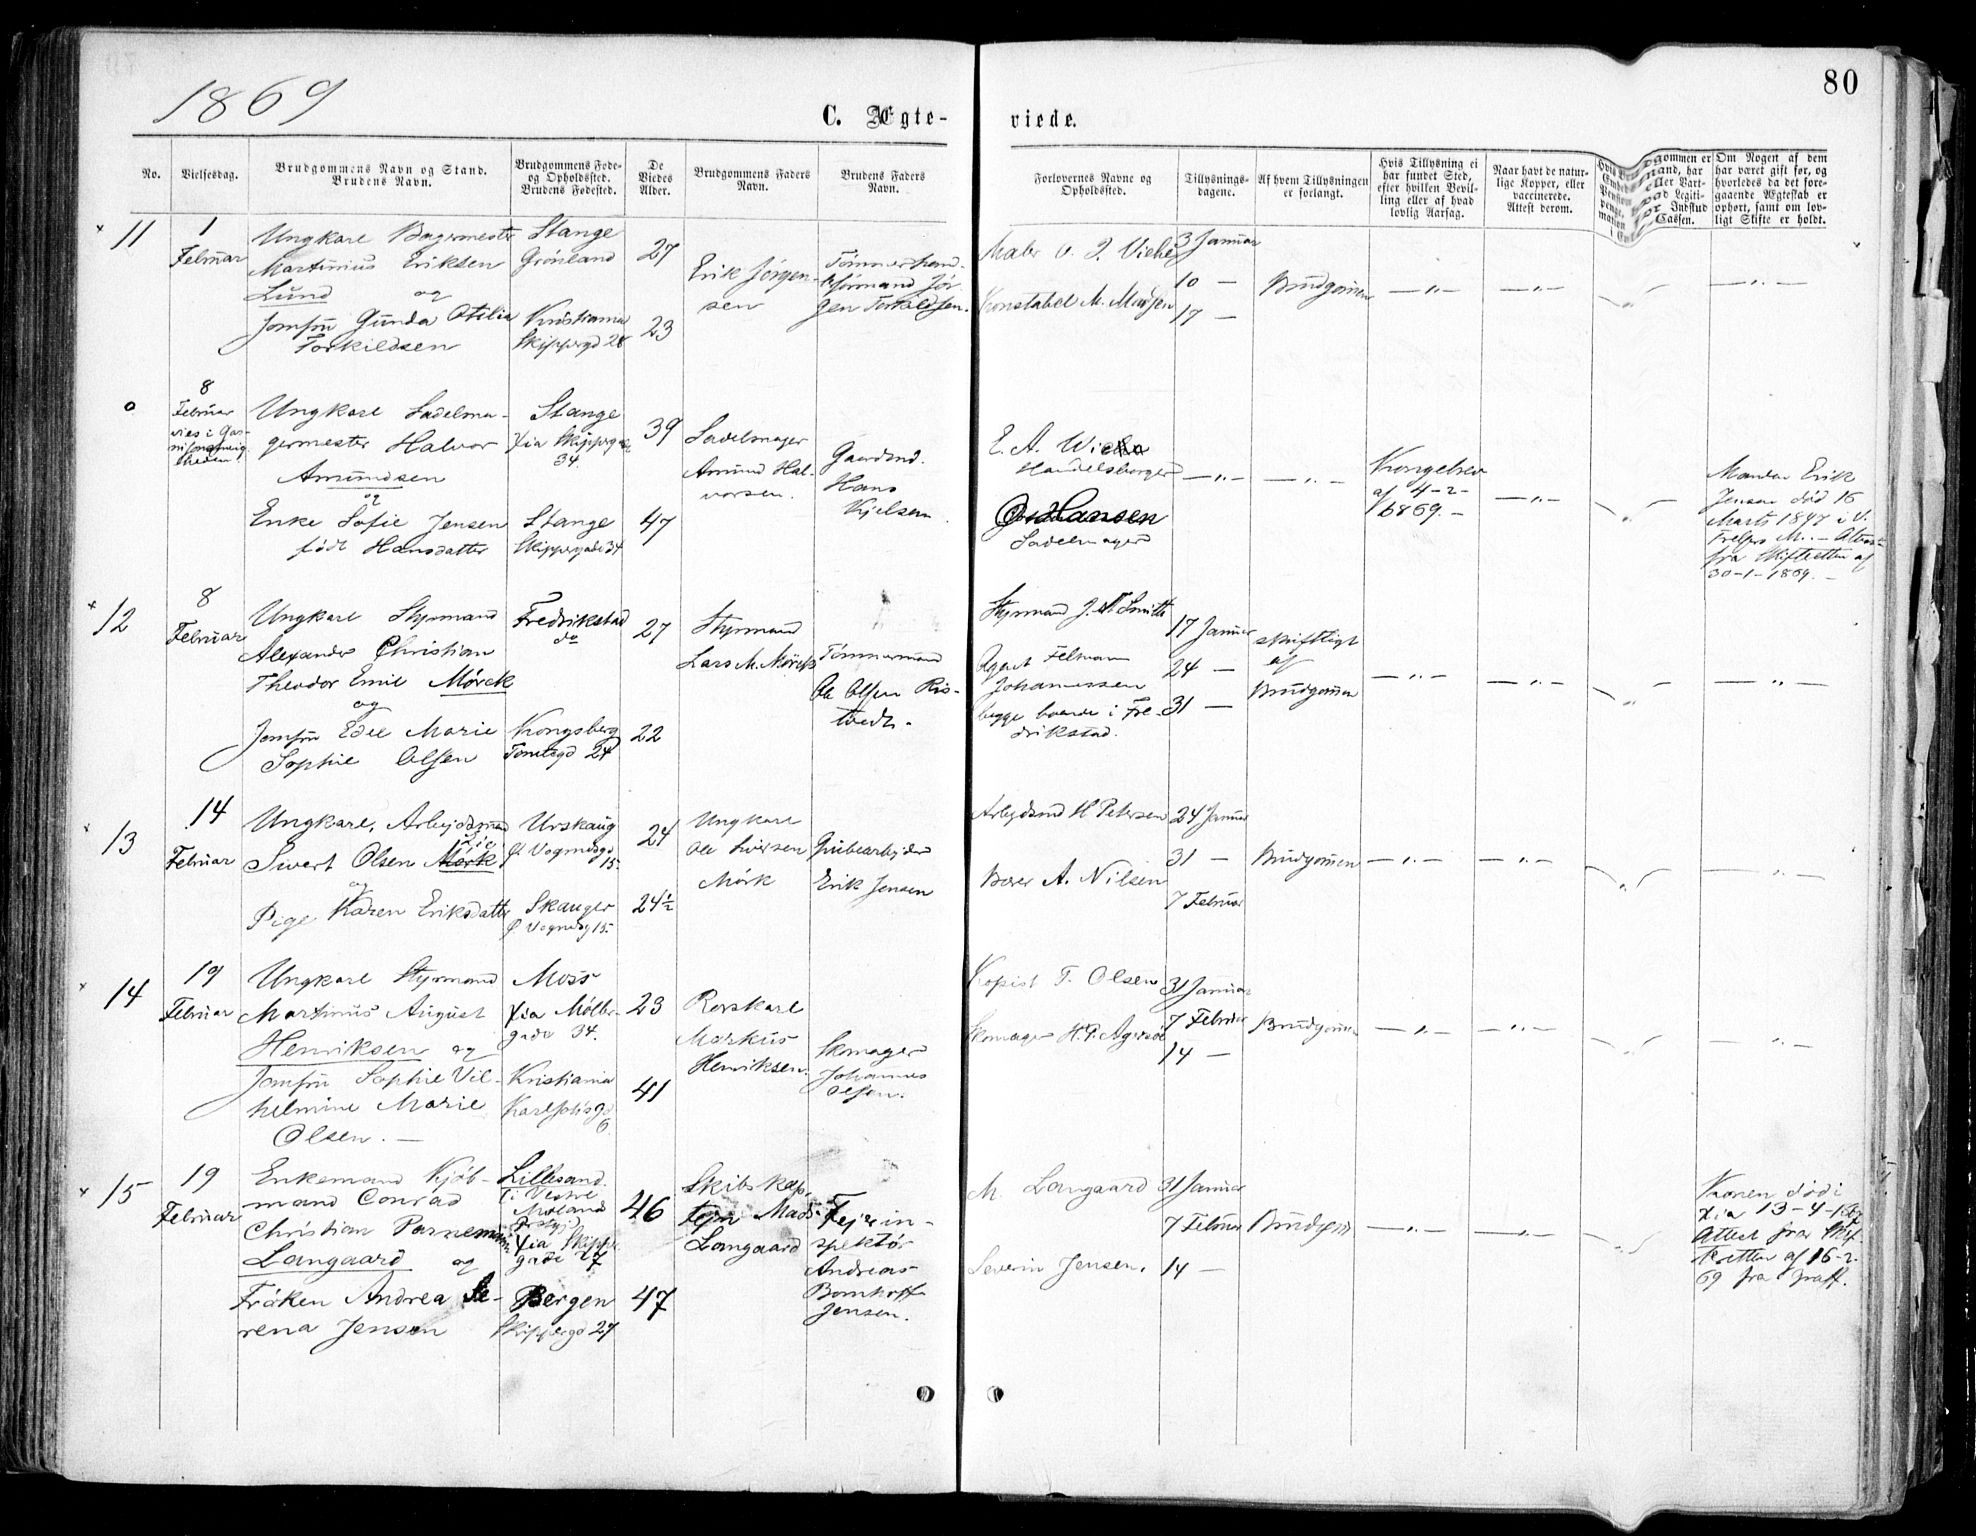 1869
80
C. Ægte-
viede.
No.
Vielsesdag.
Brudgommens Navn og Stand.
Brudens Navn.
Brudgommens Føde-
og Opholdssted.
Brudens Fødested.
De
Viedes
Alder.
Brudgommens Faders
Navn.
Brudens Faders
Navn.
Forlovernes Navne og
Opholdssted.
Tillysnings-
dagene.
Af hvem Tillysningen
er forlangt.
Hvis Tillysning ei
har fundet Sted,
efter hvilken Bevil-
ling eller af hvad
lovlig Aarsag.
Naar havt de natur-
lige Kopper, eller
vaccinerede.
Attest derom.
Om Nogen af dem
har været gift før, og
hvorledes da det fore-
gaaende Ægteskab er
ophørt, samt om lov-
ligt Skifte er holdt.
11
1
Februar
Ungkarl Bagermester
Martinius Eriksen
Lund og
Jomfru Gunda Otilia
Torkildsen
Stange
Grønland
Kristiania
Skippergd 28
27
23
Erik Jørgen-
sen
Tømmerhand-
Jør-
gen Torkildsen.
Maler
Konstabel M. Madsen
3 Januar
10 —
17 —
Brudgommen
— „ —
— „ —
— „ —
8
Februar
vies i Gar-
heden
Ungkarl Sadelma-
germester Halvor
Amundsen
og
Enke Sofie Jensen
født Hansdatter
Stange
Xia Skippergade
34.
Stange
Skippergade 34
39
47
Sadelmager
Amund Hal-
vorsen.
Gaardmd.
Hans
Kjelsen.
E. A.
Handelsborger
Hansen
Sadelmager
— „ —
— „ —
Kongebrev
af 4-2-
1869.-
— „ —
Manden Erik
Jensen død 16
Marts 1847 i V.
fra Skifteretten af
30-1-1869. —
12
8
Februar
Ungkarl Styrmand
Alexander Christian
Theodor Emil Mørck
og
Jomfru Edel Marie
Sophie Olsen
Fredrikstad
do
Kongsberg
Tomtegd 24
27
22
Styrmand
Lars M. Mørck
Tømmermand
Ole Olsen Ris-
tvedt.
Styrmand J. Smith
Agent
Johannessen
begge boende i Fre-
drikstad.
17 Januar
24 —
31 —
skriftligt
af
Brudgommen
— „ —
— „ —
— „ —
13
14
Februar
Ungkarl, Arbejdsmand
Sivert Olsen Mørk
og
Pige Karen Eriksdatter
Urskaug
Ø. Vognmdgd
15.
Skauger
Ø Vognmdg 15.
24
24½
Ungkarl
Ole Sivertsen
Mørk
Grubearbejder
Erik Jensen
Arbejdsmd H Petersen
Borer A. Nilsen
24 Januar
31 —
7 Februar
Brudgommen
— „ —
— „ —
— „ —
14
19
Februar
Ungkarl Styrmand
Martinius August
Henriksen og
Jomfru Sophie Vil-
helmine Marie
Olsen. —
Moss
Xia Møller-
gade 34.
Kristiania
Karl Johsgd
6
23
41
Rorskarl
Markus
Henriksen.
Skomager
Johannes
Olsen.
Kopist T. Olsen
Skomager H. P.
31 Januar
7 Februar
14 —
Brudgommen
— „ —
— „ —
— „ —
15
19
Februar
Enkemand Kjøb-
mand Conrad
Christian
Langaard og
Frøken Andrea Se-
rena Jensen
Lillesand
i Vestre
Moland
Prstgj.
Xia Skipper-
gade 27
Bergen
Skippergd 27
46
47
Skibskap-
tejn Mads
Langaard
Fejein-
spektør
Andreas
Bornhoff
Jensen.
M. Langaard
Severin Jensen.
31 Januar
7 Februar
14 —
Brudgom
— „ —
— „ —
Konen død i
Xia 13-4-
Attest fra Skif-
teretten af 16-2-
69 fra